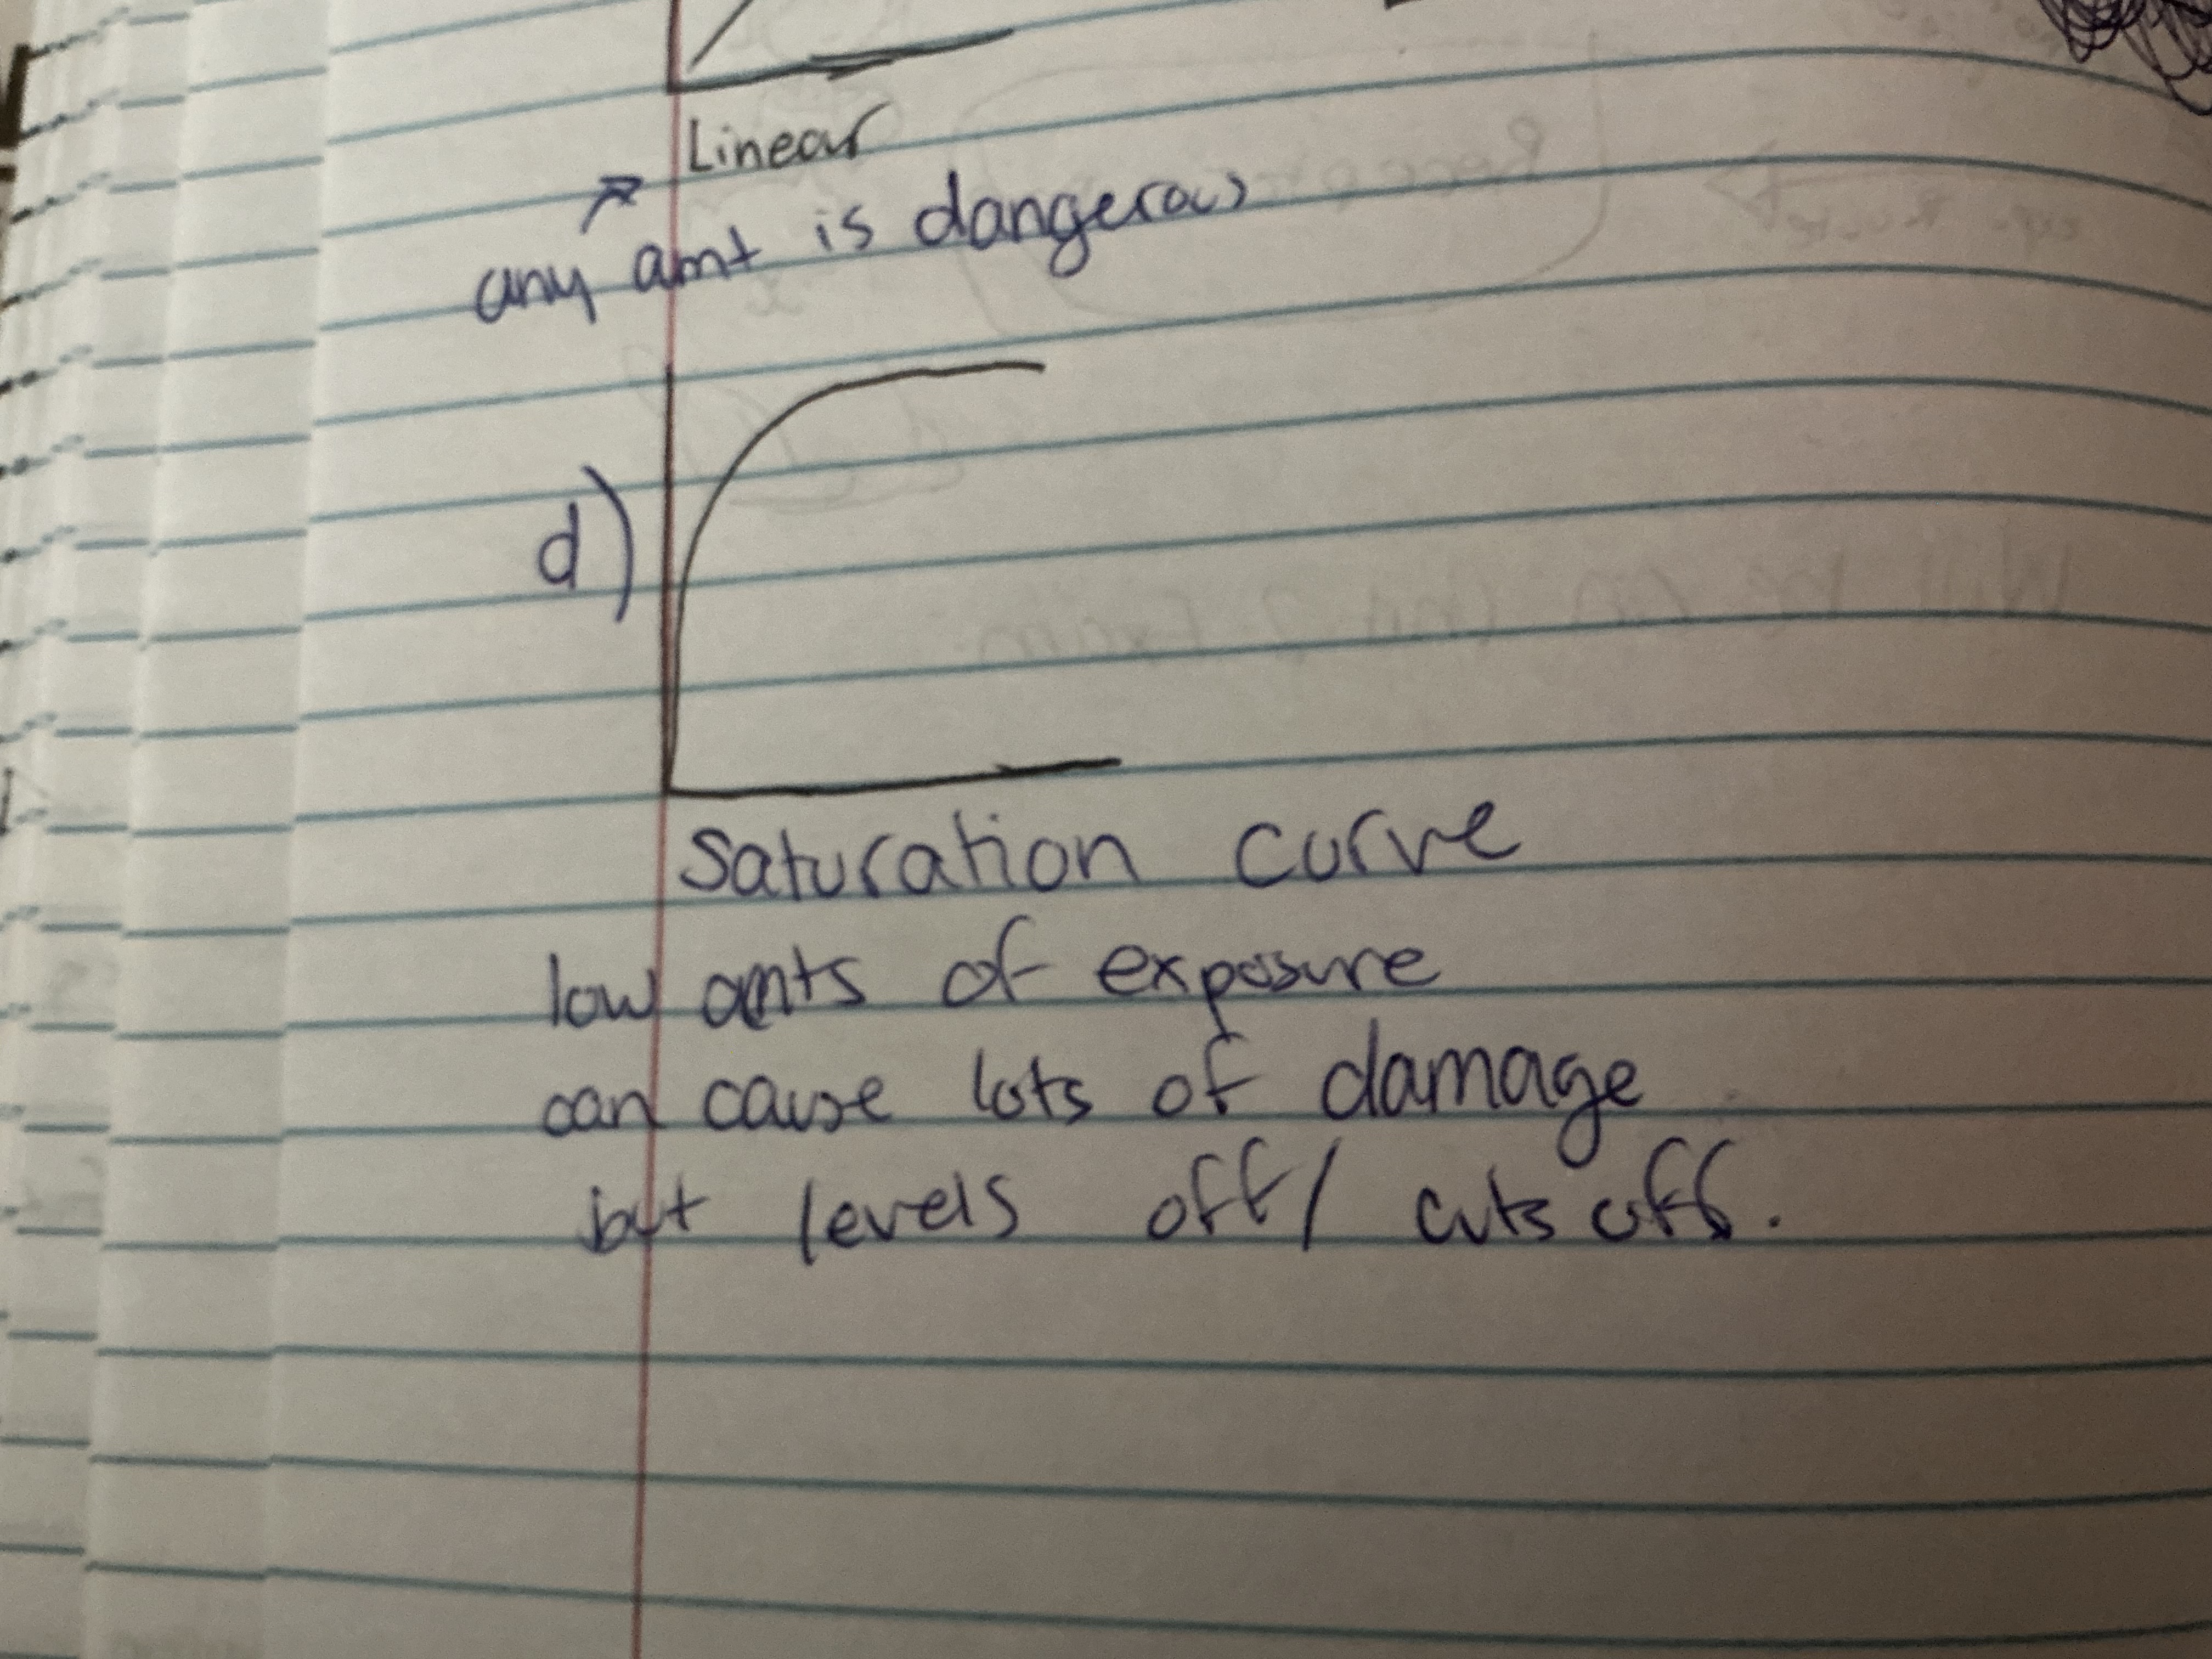 Linear
any amt is dangerous
d)
Saturation curve
low amts of exposure
can cause lots of damage
but levels off/ cuts off.